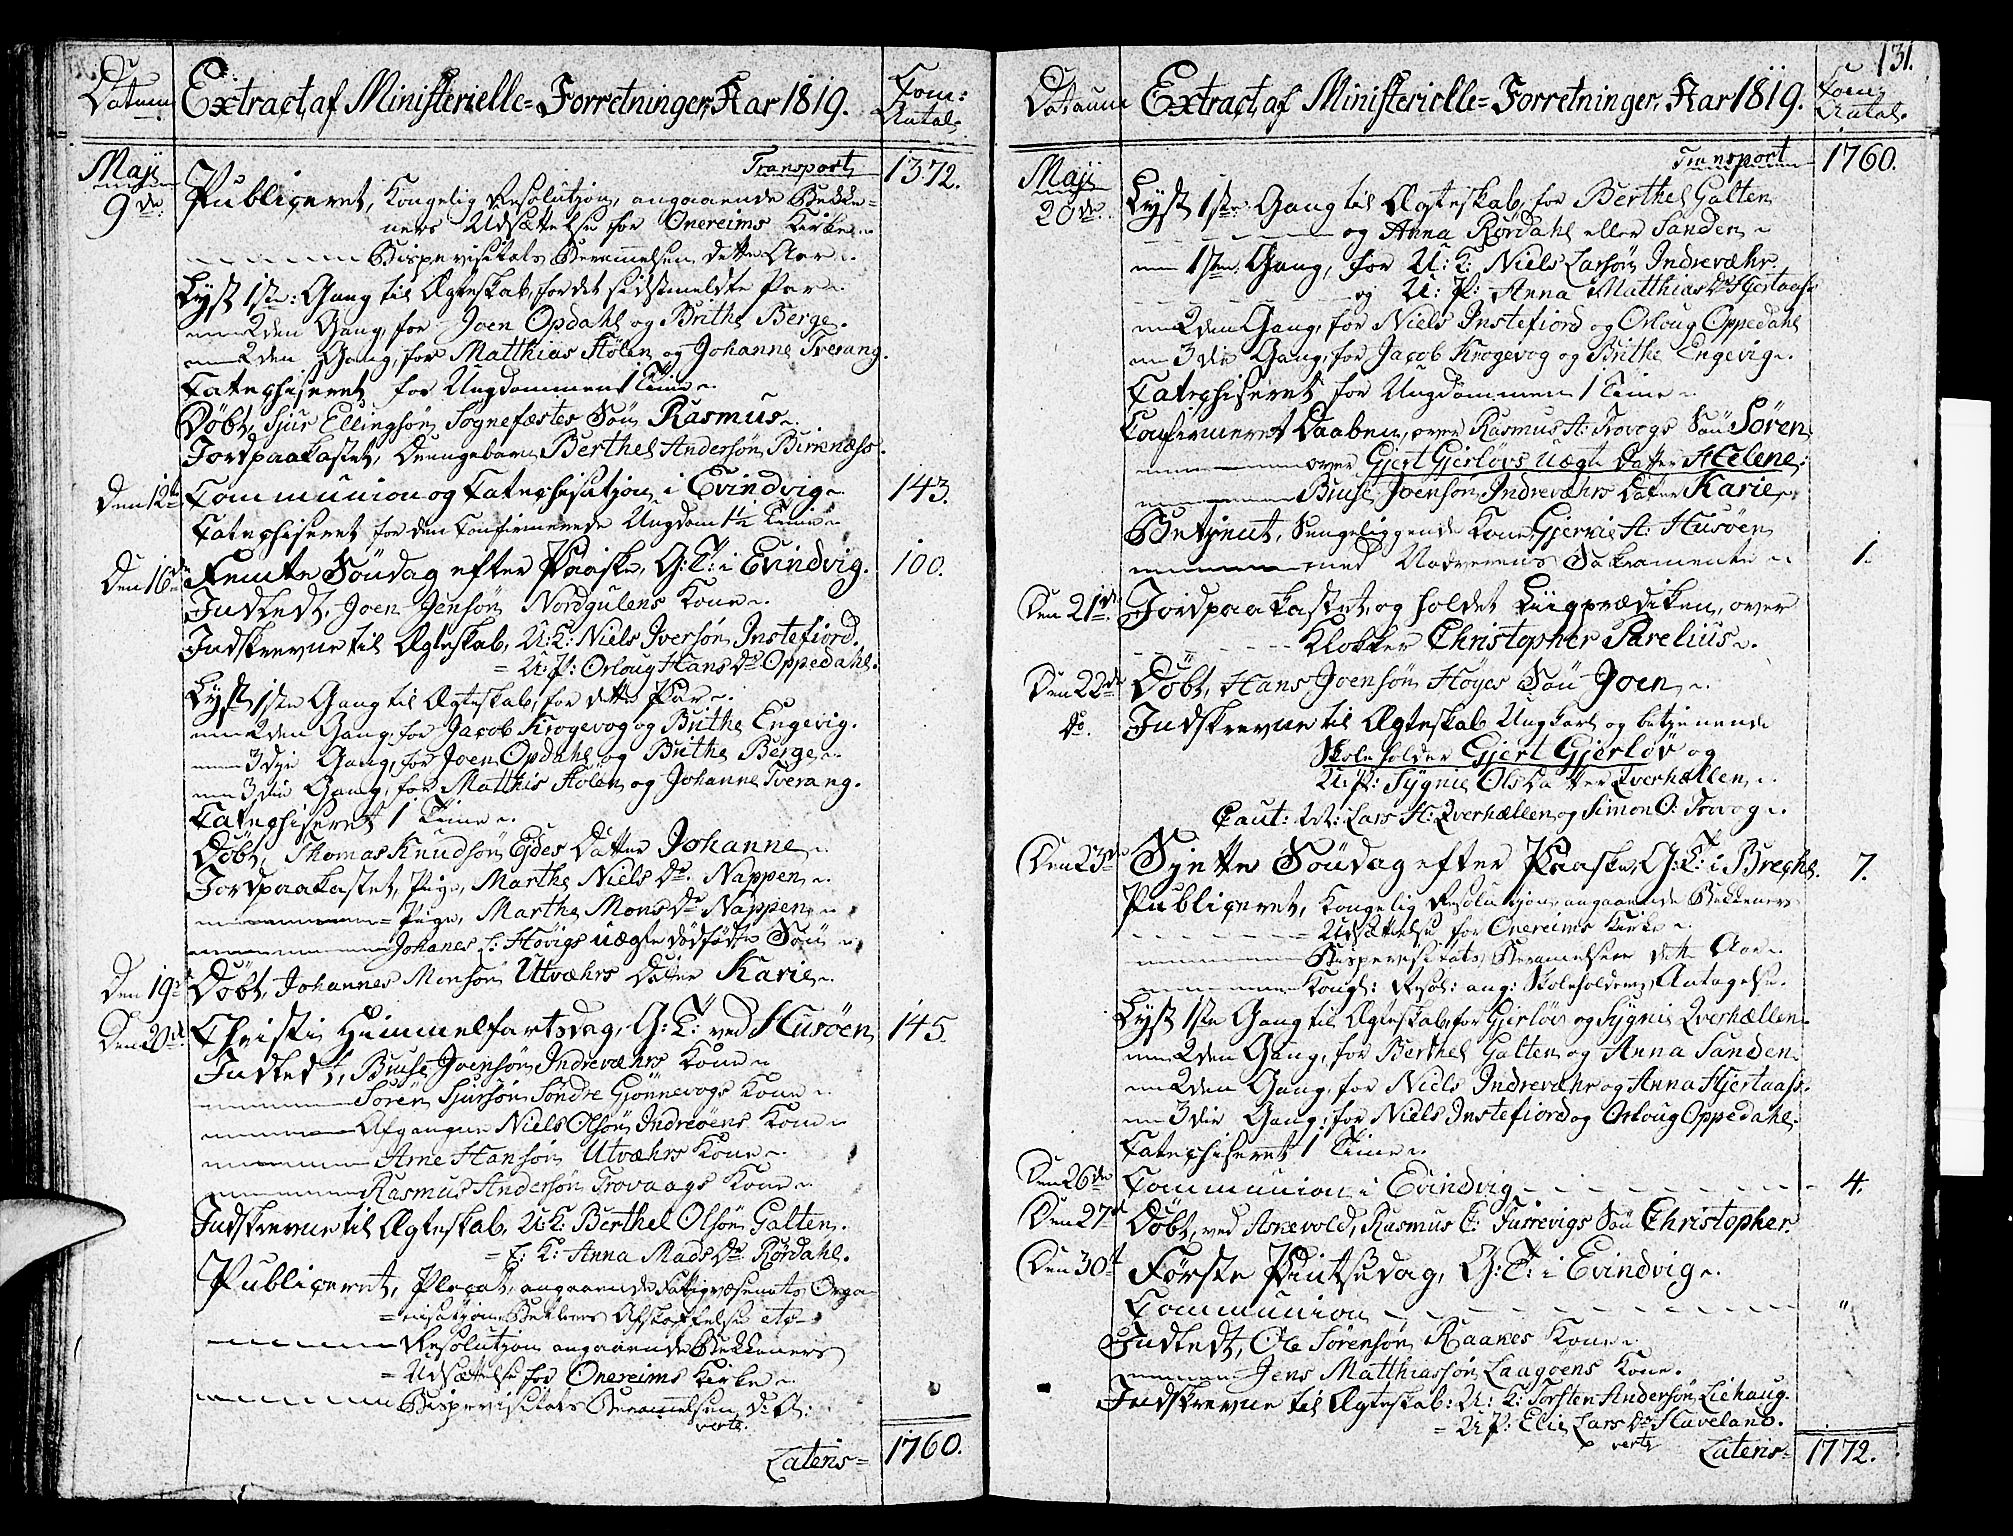 Datum
Extract af Ministerielle=Forretninger, Aar 1819.
Com:
Antal.
Transport 1372.
Maji
9de Publiceret, Kongelig Resolution, angaaende Bække=
ners Udsættelse for Onereims Kirke.
Bispevisitats Berammelsen dette Aar.
Lyst 1ste: Gang til Ægteskab, for det sidstmeldte Par.
2den Gang, for Joen Opdahl og Brithe Berge.
2den Gang, for Matthias Hølen og Johanne Tverang.
Catechiseret for Ungdommen 1 Time.
Døbt, Sjur Ellingsøn Sognefæstes Søn Rasmus.
Jordpaakastet, Drengebarn Berthel Andersøn Birenæss.
Den 12te Communion og Catechisation i Evindvig. 143.
Catechiseret for den Confirmerede Ungdom 1½ Time.
Den 16de Femte Søndag efter Paaske, G: T: i Evindvig. 100.
Indledt, Joen Jensøn Nordgulens Kone.
Indskrevne til Ægteskab, U: K: Niels Iversøn Instefiord.
= U: P: Orloug Hans Dr Oppedahl.
Lyst 1ste Gang til Ægteskab, for dette Par.
2den Gang, for Jacob Krogevog og Brithe Engevig.
3die Gang, for Joen Opdahl og Brithe Berge.
3die Gang, for Matthis Hølen og Johanne Tverang.
Catechiseret 1 Time.
Døbt, Thomas Knudsøn Eides Datter Johanne.
Jordpaakastet, Pige, Marthe Niels Dr. Nappen.
= Pige, Marthe Mons Dr Nappen.
Johanes Høvigs uægte dødfødte Søn.
Den 19de Døbt, Johannes Monsøn Utværs Datter Karie.
Den 20de Christi Himmelfartsdag, G: T: ved Husøen 145.
Indledt, Bruse Joensøn Indreværs Kone
Søren Sjursøn Søndre Gjønnevogs Kone
Afgangne Niels Olsøn Indreøens Kone
Arne Hansøn Utværs Kone.
Rasmus Andersøn Trovaags Kone.
Indskrevne til Ægteskab, U: K: Berthel Olsøn Galten.
= E: K: Anna Mads Dr. Rørdahl.
Publiceret, Placat, angaaende Fattigvæsenets Orga-
=nisation Betlers Afskaffelse etc.
Resolution angaaende Bækkeners
= Udsættelse for Onereims Kirke.
Bispevisitats Berammelsen d: A:
verte.
Lateris= 1760.
131.
Datum
Extract af Ministerielle=Forretninger, Aar 1819.
Com:
Antal.
Transport 1760.
Maji
20de. Lyst 1ste Gang til Ægteskab, for Berthel Galten
og Anna Rørdahl eller Sanden
1ste Gang, for U: K: Niels Larsøn Indrevær
og U: P: Anna Matthias Dr Hjertaas
2den Gang, for Niels Instefiord og Orloug Oppedahl
3die Gang, for Jacob Krogevog og Brithe Engevig.
Catechiseret for Ungdommen 1 Time.
Confirmeret Daaben, over Rasmus A: Trovogs Søn Søren
over Gjert Gjerløvs uægte Datter Helene.
Bruse Joensøn Indreværs Datter Karie.
Betjent, Sengeliggende Kone Gjernie A: Husøen
med Nadverens Sakramente. 1.
Den 21de. Jordpaakastet og holdet Liigprædiken, over
Klokker Christopher Parelius.
Den 22de Døbt, Hans Joensøn Høyes Søn Joen.
do. Indskrevne til Ægteskab Ungkarl og betjenende
Skoleholder Gjert Gjerløv og
U: P: Sygnie Olsdatter Qverhællen.
Caut: Lars H: Qverhællen og Simon O: Trovog.
Den 23de Sjette Søndag efter Paaske, G: T: i Brecke. 7.
Publiceret, Kongelig Resolution angaaende Bækkeners
= Udsættelse for Onereims Kirke.
Bispevisitats Berammelsen dette Aar.
Kongl: Resol: ang: Skoleholderes Antagelse.
Lyst 1ste Gang til Ægteskab, for Gjerløv og Sygnie Qverhællen
2den Gang, for Berthel Galten og Anna Sanden.
2den Gang, for Niels Indrevær og Anna Hjertaas.
3die Gang, for Niels Instefiord og Orloug Oppedahl.
Catechiseret 1 Time.
Den 26de Communion i Evindvig. 4.
Den 27de Døbt, ved Asnevold, Rasmus E: Furrevigs Søn Christopher.
Den 30te Første Pintsedag, G: T: i Evindvig.
Communion "
Indledt, Ole Sørensøn Raanes Kone.
Jens Matthiassøn Laagøens Kone.
Indskrevne til Ægteskab: U: K: Torsten Andersøn Liehaug.
= U: P: Elie Lars Dr Haveland.
verte
Lateris= 1772.